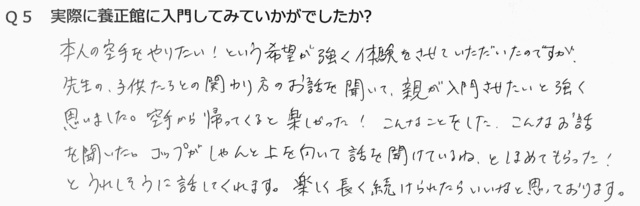 Q5 実際に養正館に入門してみていかがでしたか?
本人の空手をやりたい!という希望が強く体験をさせていただいたのですが、
先生の、子供たちとの関わり方のお話を聞いて、親が入門させたいと強く
思いました。空手から帰ってくると楽しかった!こんなことをした、こんなお話
を聞いた。コップがしゃんと上を向いて話を聞けているね、とほめてもらった!
とうれしそうに話してくれます。楽しく長く続けられたらいいなと思っております。